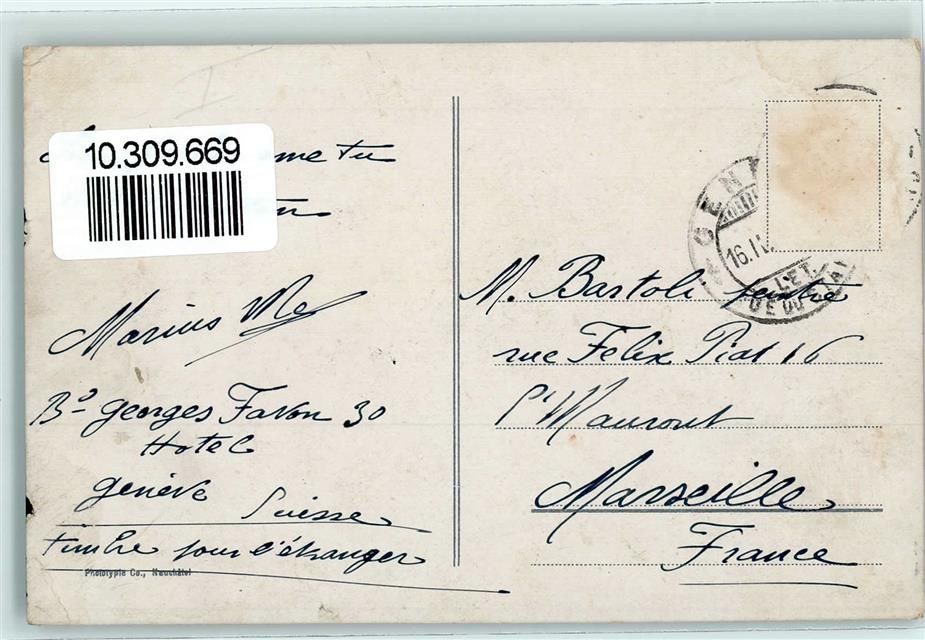 10.309.669
me tu
Marius
Bd Georges Favon 30
Hotel
Genève
Suisse
timbre pour l'étranger
Phototypie Co., Neuchâtel
GENÈ
16.II.
LET.
M. Bartoli peintre
rue Felix Piat 16
St Mauront
Marseille
France